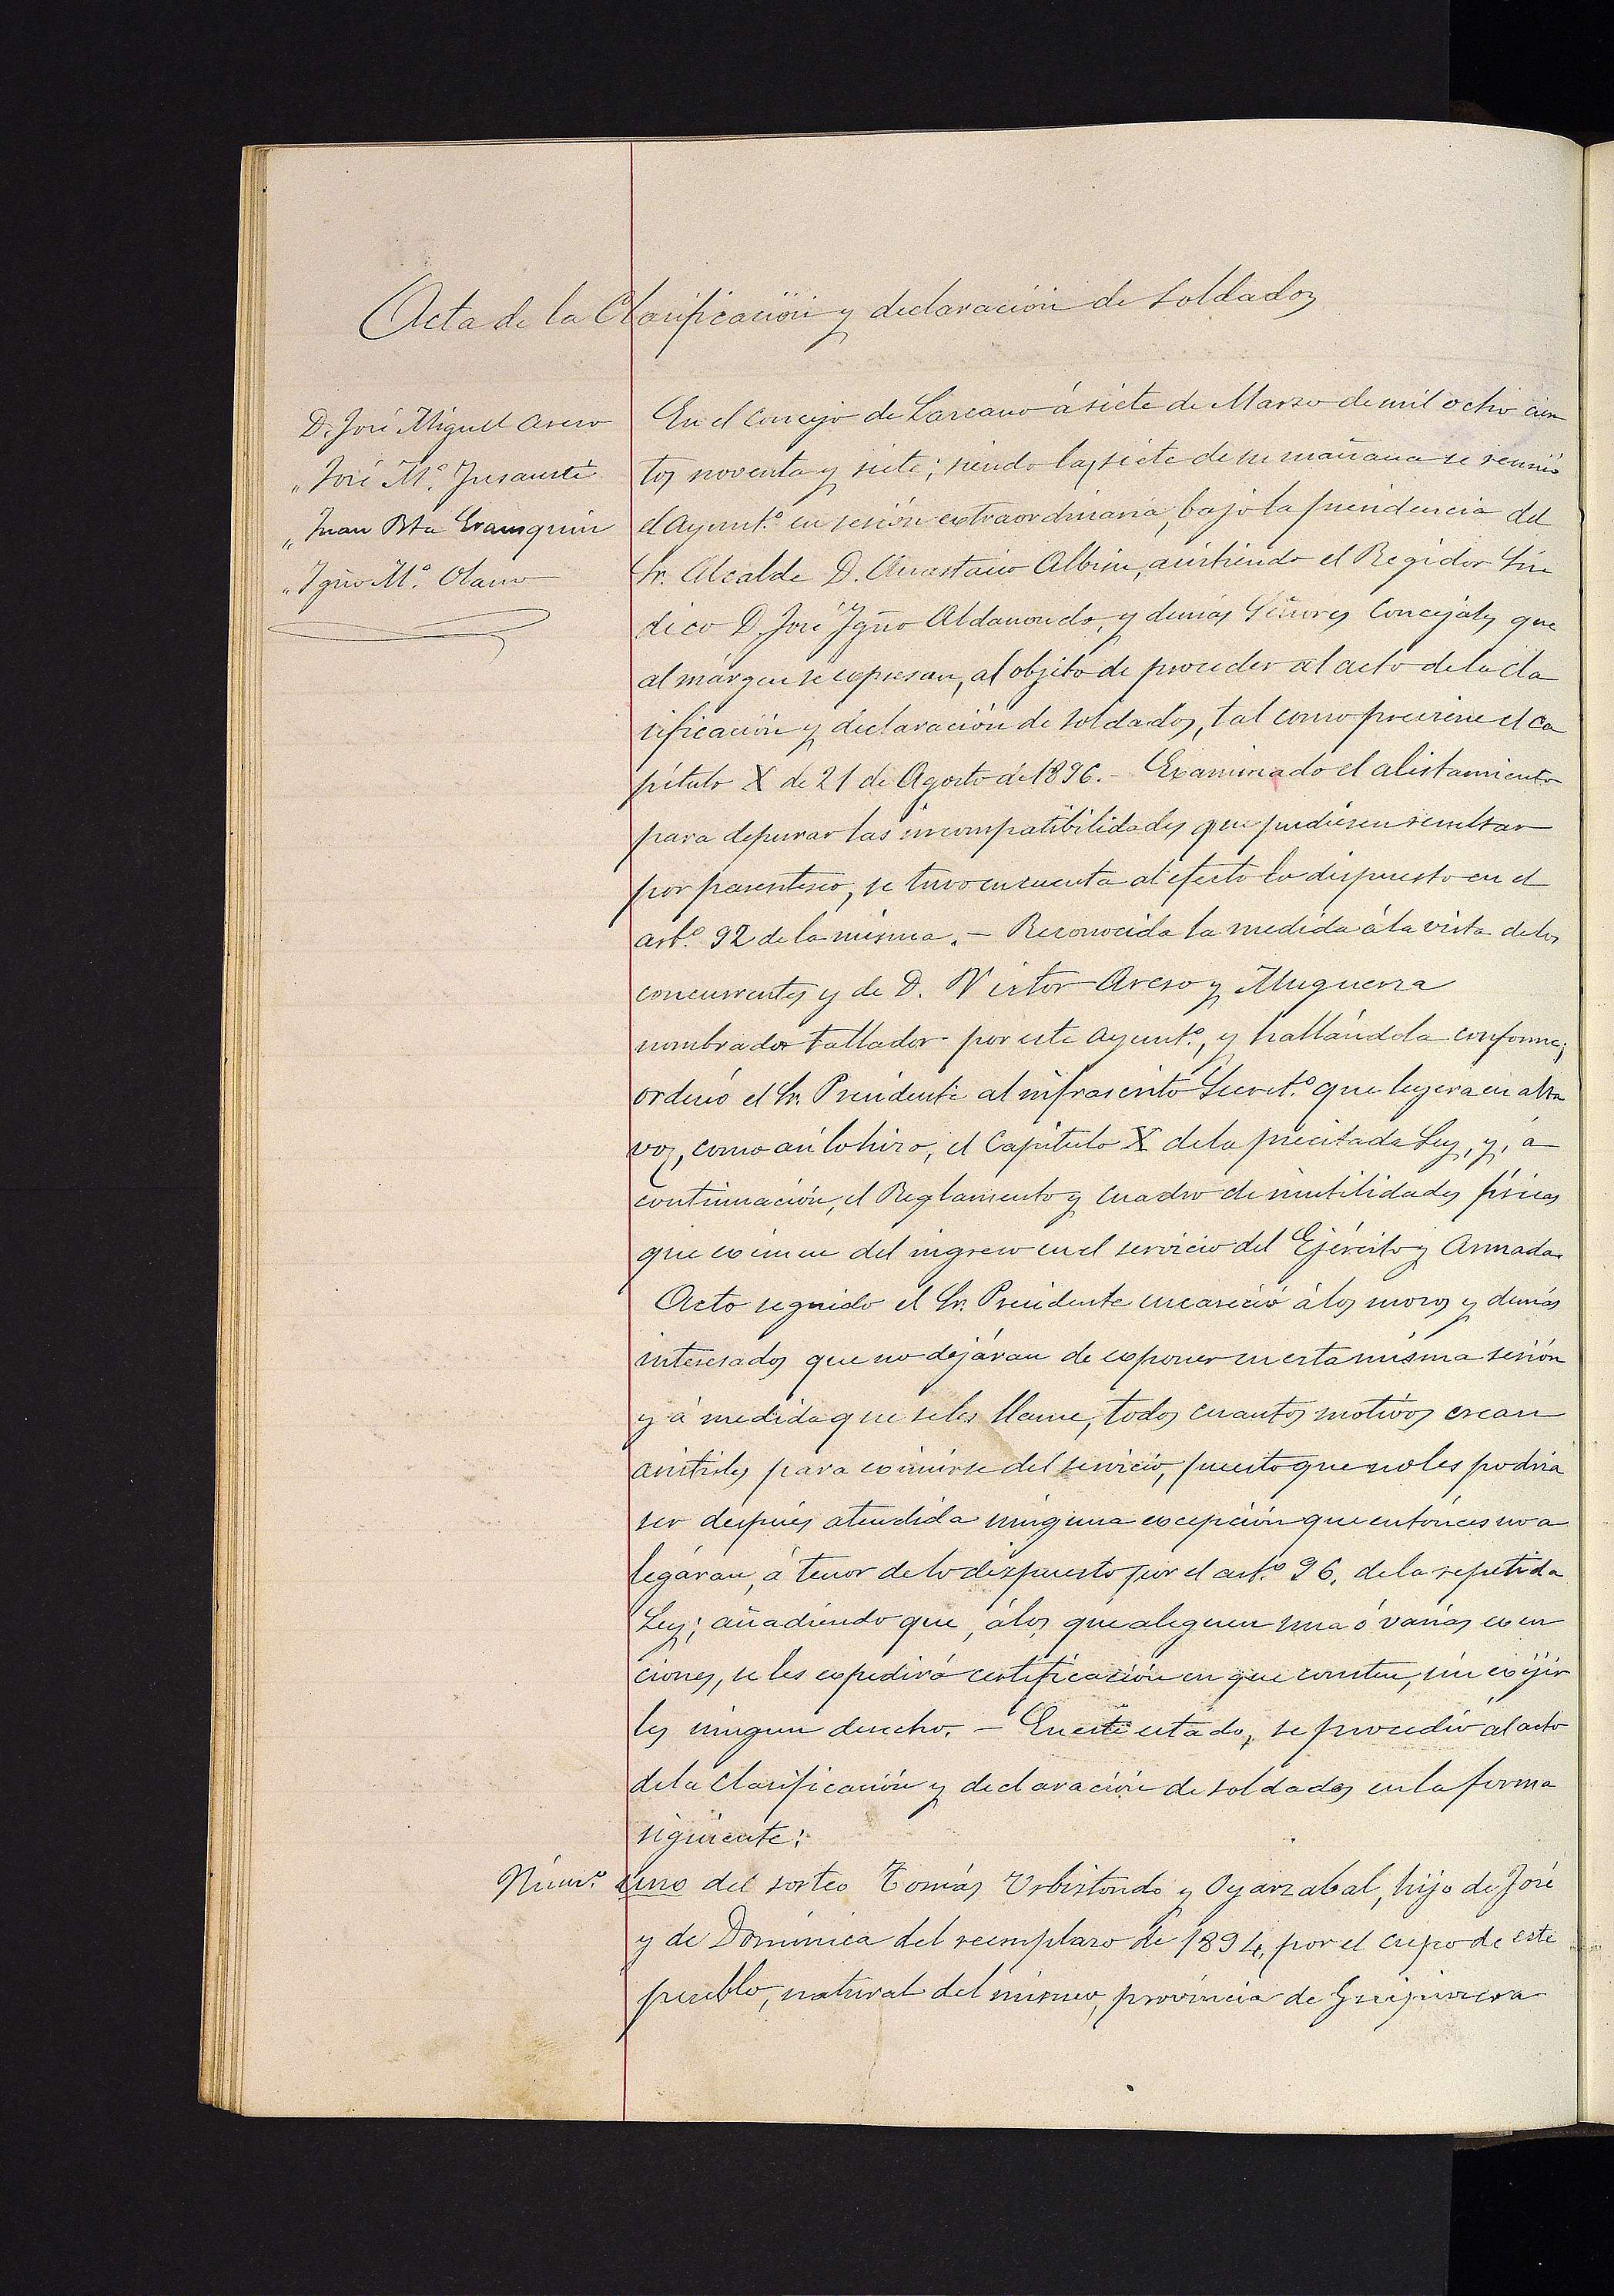 Acta de la Clasificación y declaración de soldados
D. José Miguel Areso
„ José M.ª Jusausti
„ Juan Bta Erausquin
„ Ygno M.ª Olano
En el Concejo de Lazcano á siete de Marzo de mil ocho cien
tos noventa y siete; siendo las siete de su mañana se reunió
el Ayunt.º en sesión extraordinaria, bajo la presidencia del
Sr. Alcalde D. Anastasio Albisu, asistiendo el Regidor Sín
dico D. José Ygno Aldanondo, y demás Señores Concejales que
al márgen se expresan, al objeto de proceder al acto de la cla
sificación y declaración de soldados, tal como previene el ca
pítulo X de 21 de Agosto de 1896.- Examinado el alistamiento
para depurar las incompatibilidades que pudiesen resultar
por parentesco, se tuvo en cuenta al efecto lo dispuesto en el
art.º 92 de la misma. - Reconocida la medida á la vista de los
concurrentes y de D. Victor Areso y Muguerza
nombrado tallador por este Ayunt.º, y hallándola conforme;
ordenó el Sr. Presidente al infrascrito Secret.º que leyera en alta
voz, como así lo hizo, el Capítulo X de la precitada Ley, y, á
continuación, el Reglamento y cuadro de inutilidades físicas
que eximen del ingreso en el servicio del Ejército y Armada.
Acto seguido el Sr. Presidente encareció á los mozos y demás
interesados que no dejáran de exponer en esta misma sesión
y á medida que se les llame, todos cuantos motivos crean
asistirles para eximirse del servicio, puesto que no les podría
ser después atendida ninguna excepción que entónces no a
legáran, á tenor de lo dispuesto por el art.º 96, de la repetida
Ley; añadiendo que, á los que aleguen una ó varias exen
ciones, se les expedirá certificación en que consten, sin exijir
les ningun derecho. - En este estado, se procedió al acto
de la clasificación y declaración de soldados en la forma
siguiente:
Núm.º uno del sorteo Tomás Urbistondo y Oyarzabal, hijo de José
y de Domínica del reemplazo de 1894, por el cupo de este
pueblo, natural del mismo, provincia de Guipuzcoa